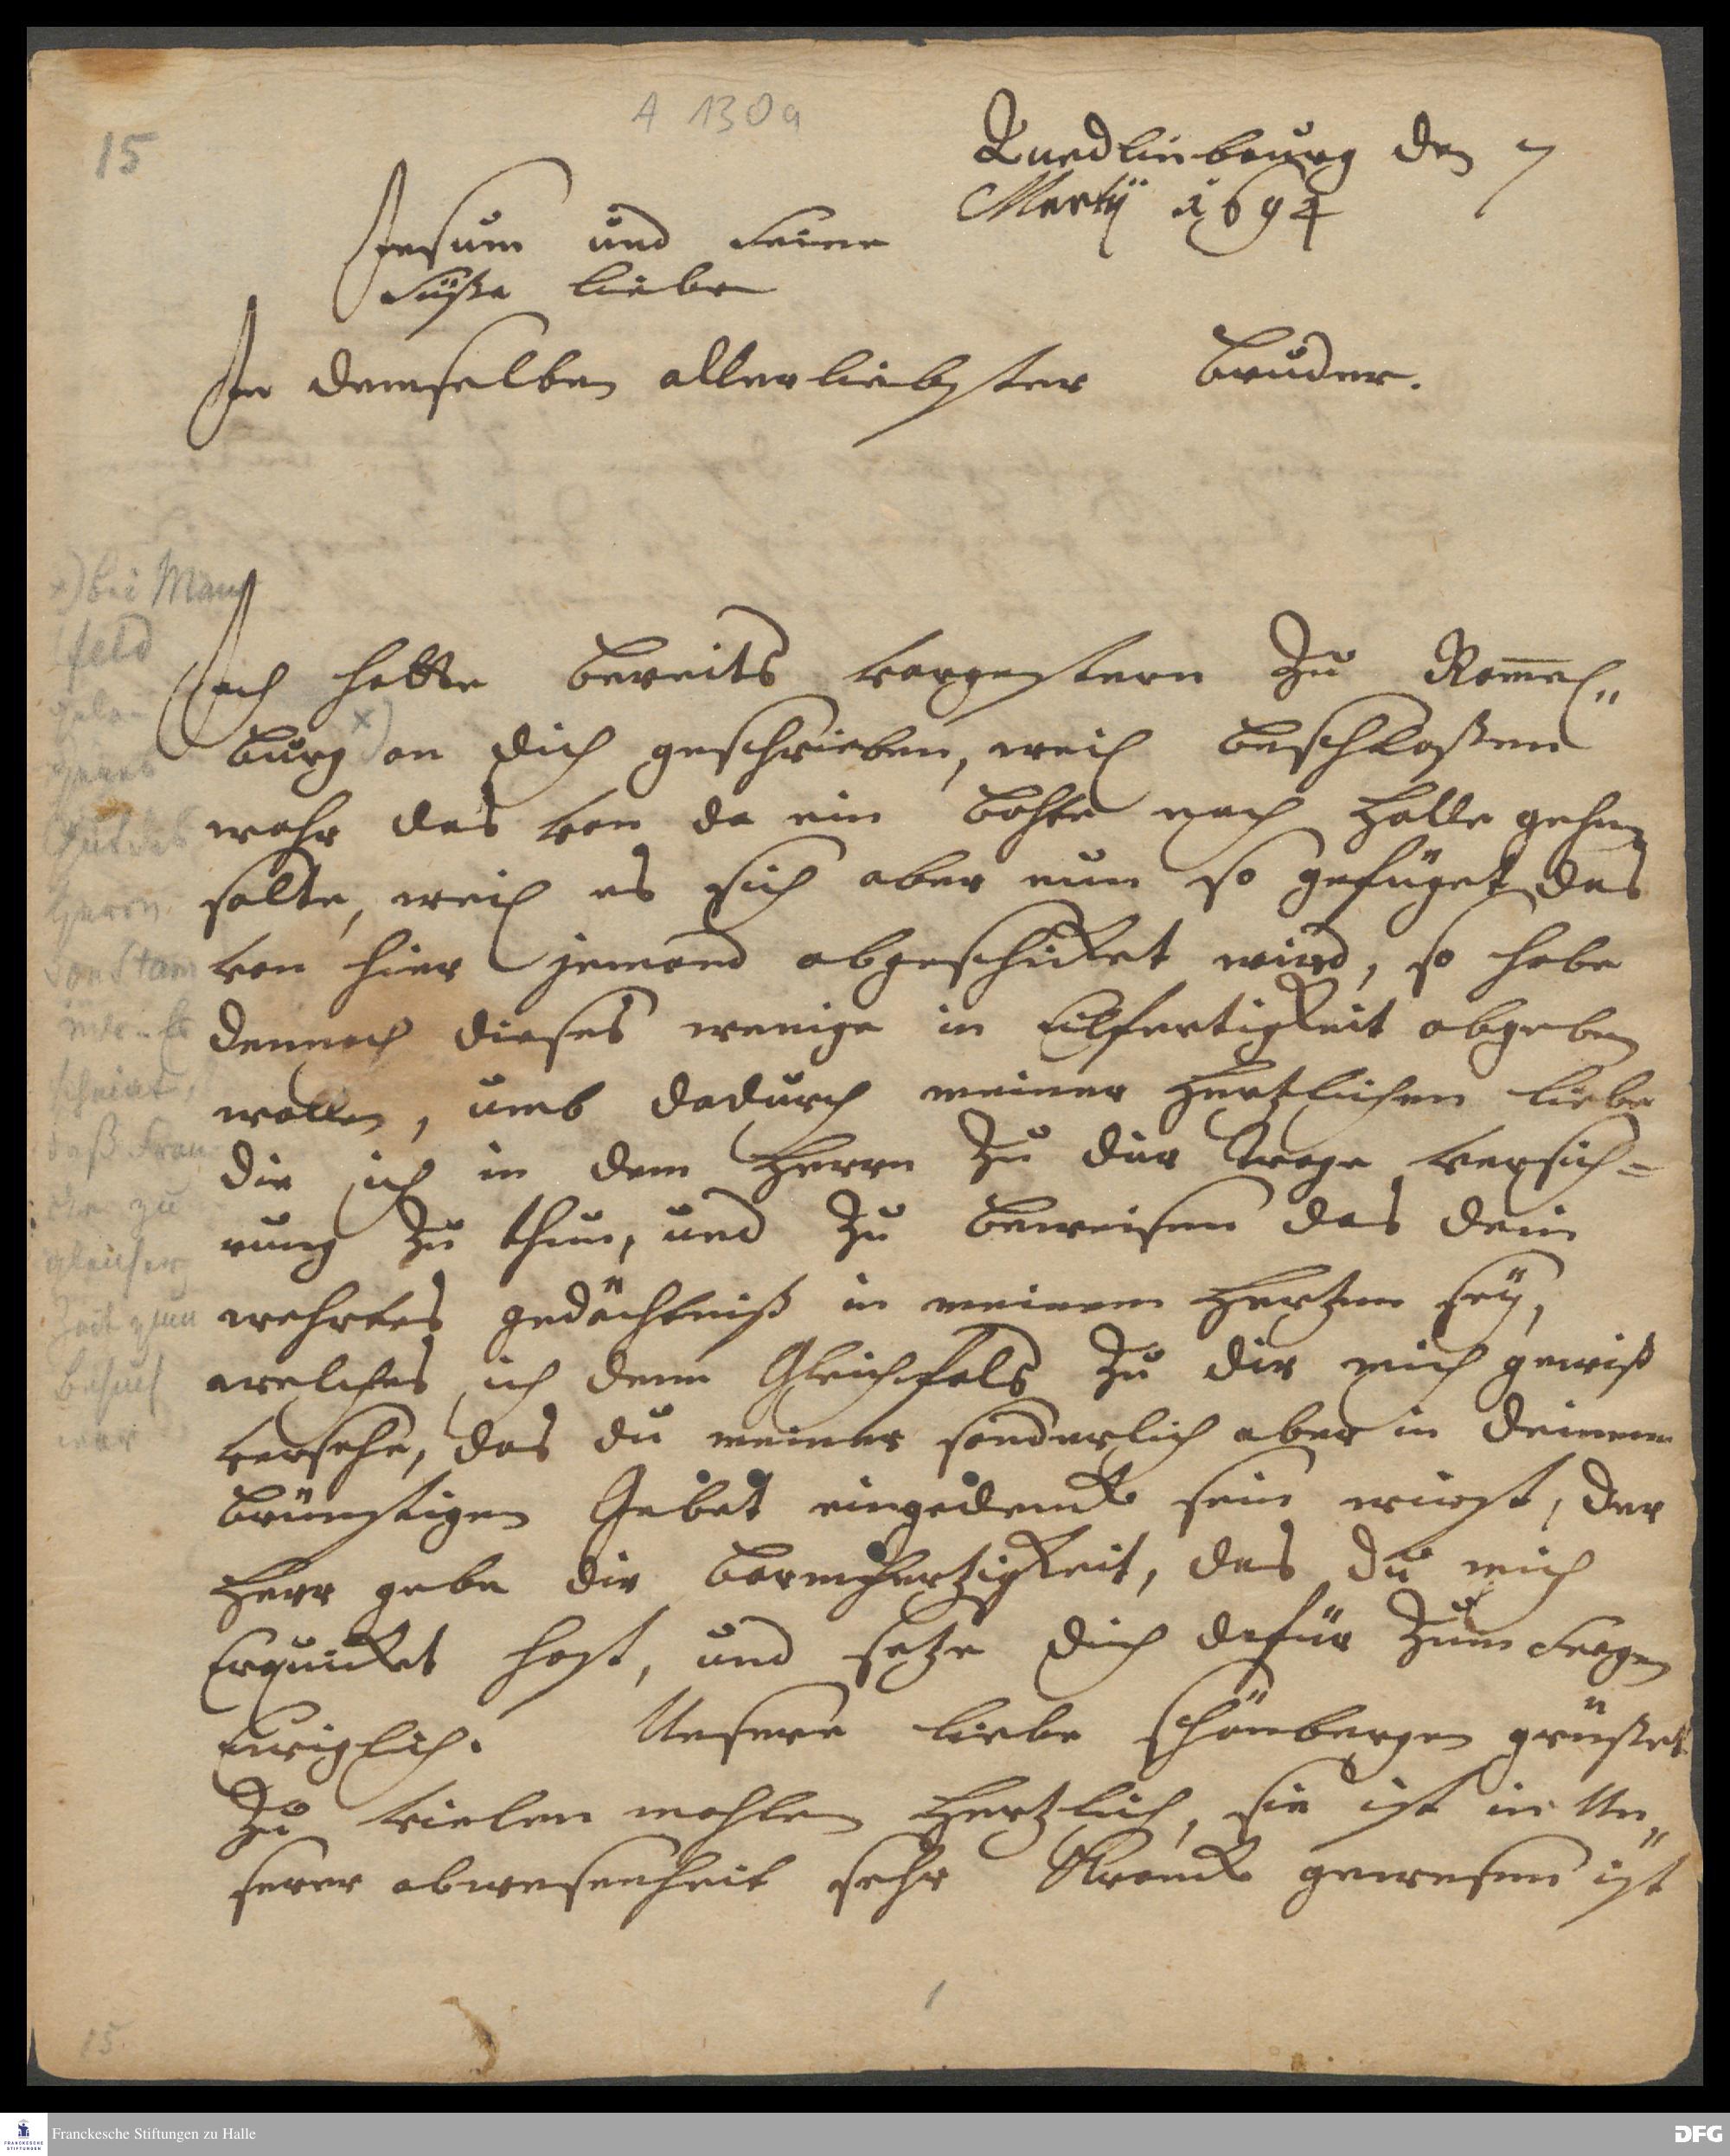 A 130a
15
Quedlinbourg den 7
Martij 1694
Jesum und seine
süße liebe
In demselben allerliebster Bruder.
Ich hatte bereits vorgestern zu Rom̅el„
burg x) an dich geschrieben, weil beschloßen
wahr das von da ein Bohte nach Halle gehen
solte, weil es sich aber nun so gefüget das
von hier jemand abgeschicket wird, so habe
dennoch dieses wenige in Eilfertigkeit abgeben
wollen, umb dadurch meiner hertzlichen liebe
die ich in dem Herrn zu dir trage versich=
rung zu thun, und zu beweisen das dein
wehrtes gedächtniß in meinem Hertzen seÿ,
welches ich denn Gleichfals zu dir mich gewiß
versehe, das du meiner sonderlich aber in deinem
brünstigen Gebet eingedenck sein wirst, der
Herr gebe dir barmhertzigkeit, das du mich
Erquicket hast, und setze dich dafür zum seegen
ewiglich. Unsere liebe schönbergen grüßet
zu vielen mahlen hertzlich, sie ist in Un„
serer abwesenheit sehr Kranck gewesen ist
x) bei Mans
feld
gele-
genes
Gut des
Herrn
von Stam
mer. Es
scheint,
daß Fran
cke zu
gleicher
Zeit zum
Besuch
war
1
15.
Franckesche Stiftungen zu Halle
DFG